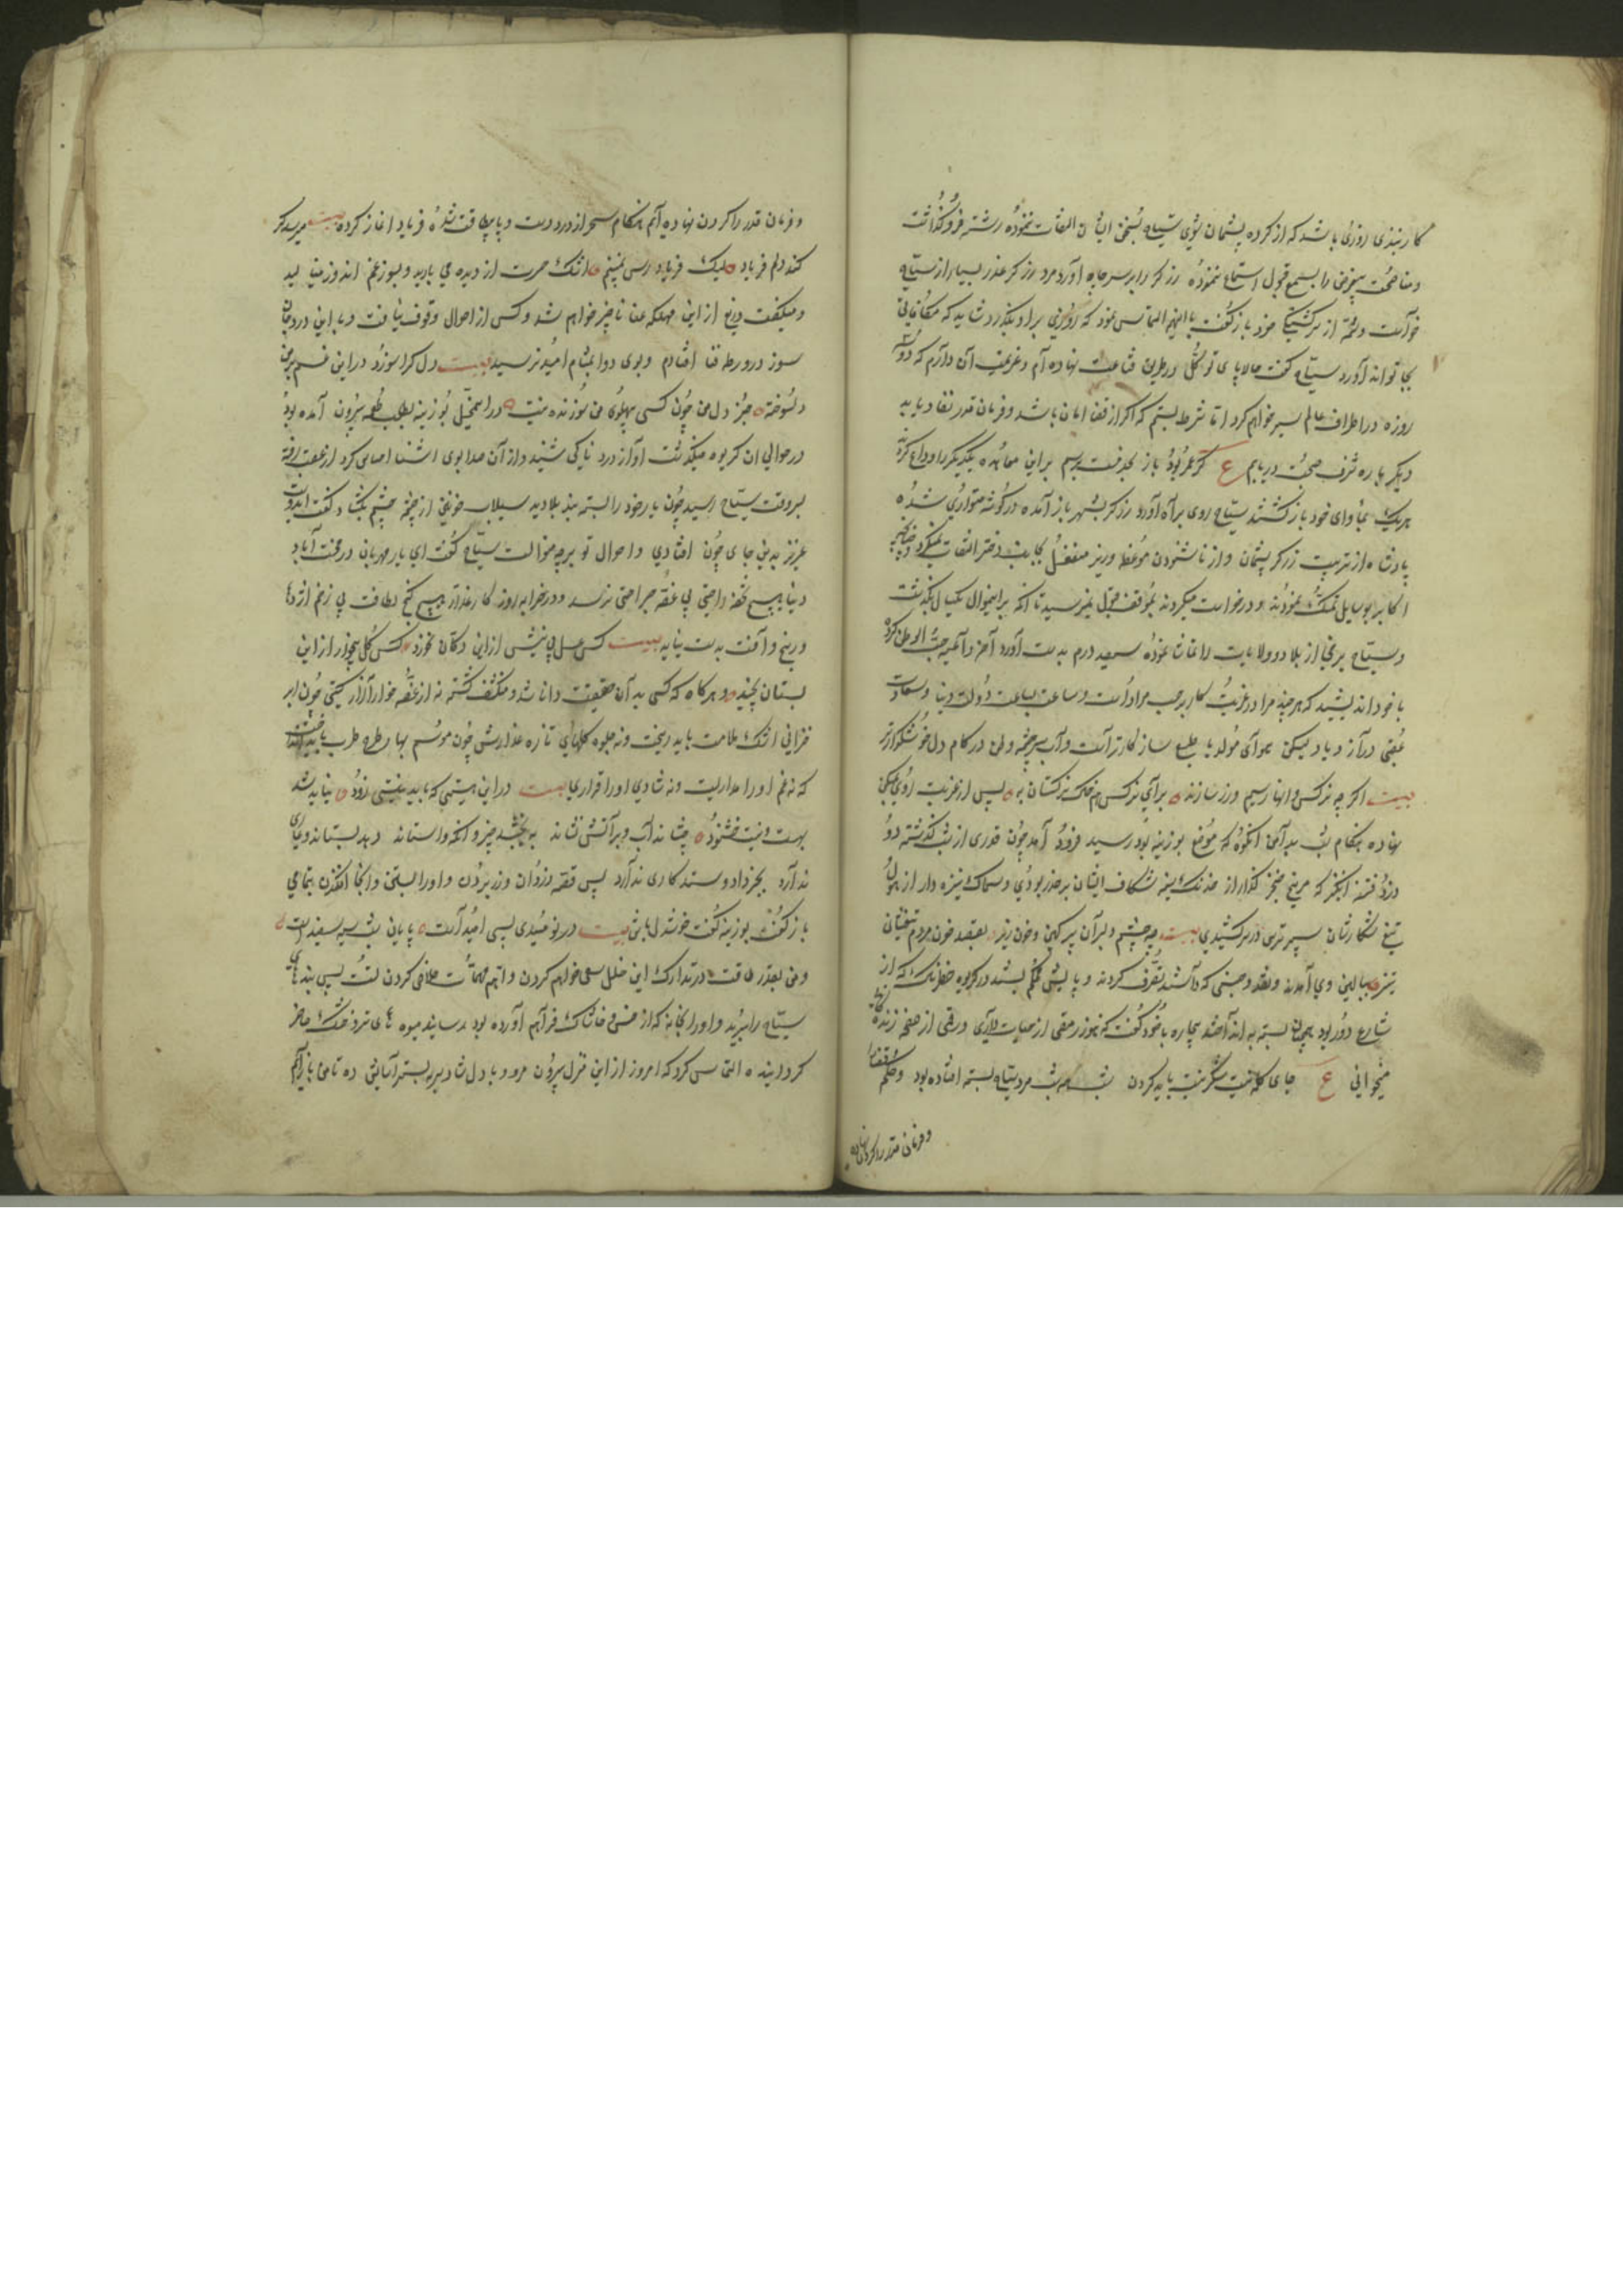 کار نبندی روزی باشد که از کرده پشیمان شوی سیاح بسخن ایشان التفات ننموده رشته فروگذاشت
ومناصحت بیغرض را بسمع قبول استماع ننموده زرکر را بر سر چاه آورد مرد زرکر عذر بسیار از سیاح
خواست و از سرکشتکی خود باز کفت التماس نمود که روزی براو بکذرد شاید که مکافاتی
بجا تواند آورد سیاح کفت حالا پای توکل در طریق قناعت نهاده آم و عزیمت آن دارم که دو سه
روزه در اطراف عالم سیر خواهم کرد اما شرط بستم که اکر از قضا امان باشد و فرمان قدر نفاد یابد
دیکر باره شرف صحبت دریابم ع کر عمر بود باز بخدمت برسم براین معاهده یکدیکر را وداع کرده
هریک بمأوای خود باز کشتند سیاح روی براه آورد زرکر بشهر باز آمده در کوشه متواری شده
پادشاه از تربیت زرکر پشیمان و از ناشنودن موعظه وزیر منفعل بجانب دختر التفات نمیکرد و چنانچه
اکابر بوسایل تمسک نمودند و درخواست میکردند بموقف قبول نمیرسید تا آنکه براینمنوال یکسال بکذشت
و سیاح برخی از بلاد و ولایات را تماشا نموده سیصد درم بدست آورد آخر داعیه حب الوطن کرده
با خود اندیشید که هرچند مرا در غربت کار بر حسب مراد است و ساعت بساعت دولت دنیا و سعادت
عقبی در ازدیاد لیکن هوای مولد با طبع سازکارتر است و آب سرچشمه وطن در کام دل خوشکوارتر
بیت اکر چه نرکس دانها زسیم و زر سازند برای نرکس هم خاک نرکستان به پس از غربت روی بمسکن
نهاده هنکام شب بدامن آنکوه که موضع بوزینه بود رسید فرود آمد چون قدری از شب کذشته دو
دزد فتنه انکیز که مریخ خنجر کذار از خدنک سینه شکاف ایشان بر حذر بودی و سماک نیزه دار از هول
تیغ شکار شان سپر ترس در سر کشیدی بیت بچشم دلبران پر کین و خون ریز بقصد خون مردم تیغشان
تیز ببالین وی آمدند و نقد و جنسی که داشت تصرف کردند و پایش محکم بسته در کریوه خطرناک که از
شارع دور بود همچنان بسته بینداختند بیچاره با خود کفت که هنوز رمقی از حیات داری ورقی از صفحه زندکانی
میخوانی ع جای کله نیست شکر میباید کردن شب همه شب مرد سیاح بسته افتاده بود و حکم قضا
و فرمان قدر را کردن نهاده
و فرمان قدر را کردن نهاده آم هنکام سحر از درد دست و پا بیطاقت شده فریاد اغاز کرده بیت میرسد کر
کند دلم فریاد لیک فریاد رس نمیبینم اشک حسرت از دیده می بارید و بسوز غم اندوز مینالید
و میکفت دریغ از این مهلکه عنا ناچیز خواهم شد و کس از احوال وقوف نیافت و با این درد جان
سوز در ورطه فنا افتادم و بوی دوا بمشام امید نرسید بیت دل کرا سوزد در این غم بر من
دلسوخته جز دل من چون کسی پهلوی من سوزنده نیست در این محل بوزینه بطلب طعمه بیرون آمده بود
در حوالی آن کریوه میکذشت آواز دردناکی شنید و از آن صدا بوی اشنا احساس کرد از عقب رفته
بسر وقت سیاح رسید چون یار خود را بسته بند بلا دید سیلاب خونین از چشمه چشم بکشاد و کفت ایدوست
عزیز بدین جای چون افتادی و احوال تو بر چه منوال است سیاح کفت ای یار مهربان در محنت آباد
دنیا هیچ تحفه راحتی بی غصه جراحتی نرسد و در خرابه روزکار غدار هیچ کنج لطافت بی زخم اژدها
و رنج و آفت بدست نیاید بیت کس عسل بی نیش از این دکان نخورد کس کل بیخار از این
بستان نچیند و هر کاه که کسی بدان حقیقت دانا شد و منکشف کشته نه از غصه خار آزار کیتی چون ابر
خزانی اشک ملامت باید ریخت و نه جلوه کلهای تازه عذارش چون موسم بهار طرح طرب باید انداخت
که نه غم او را مداریست و نه شادی او را قراری بیت در این هستی که باید نیستی زود نباید شد
بهست و نیست خشنود چشاند آب و بر آتش نشاند ببخشد چیز و آنکه واستاند دهد بستاند و عاری
ندارد بجز داد و ستد کاری ندارد پس قصه دزدان و زر بردن و او را بستن و آنجا افکندن بتمامی
باز کفت بوزینه کفت خوشدل باش بیت در نومیدی بسی امید است پایان شب سیه سفید است
و من بقدر طاقت در تدارک این خلل سعی خواهم کردن و اتم مهمات خلاص کردن تست پس بندهای
سیاح را ببرید و او را بخانه که از خس و خاشاک فراهم آورده بود رسانید میوه های تر و خشک حاضر
کردانیده التماس کرد که امروز از این منزل بیرون مرو و با دل شاد بر بستر آسایش ده تا من باز آیم